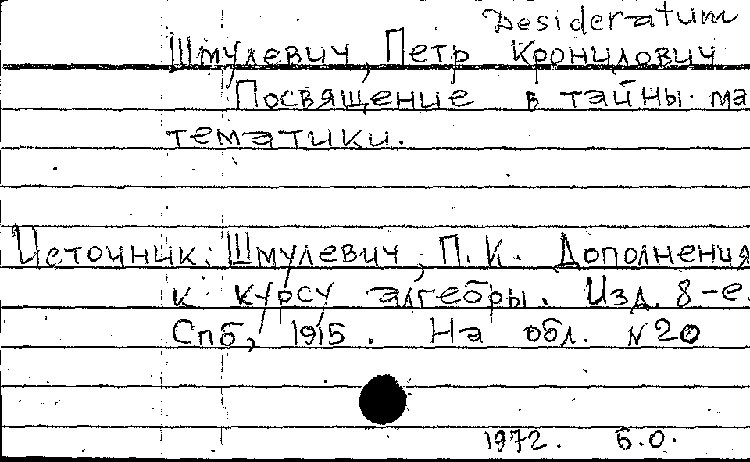 Desideratum
Шмулевич, Петр Кронидович
Посвящение в тайны ма
тематики.
Источник: Шмулевич, П.К. Дополнения
к курсу алгебры. Изд. 8-е,
Спб, 1915. На обл. N20
1972. Б.О.